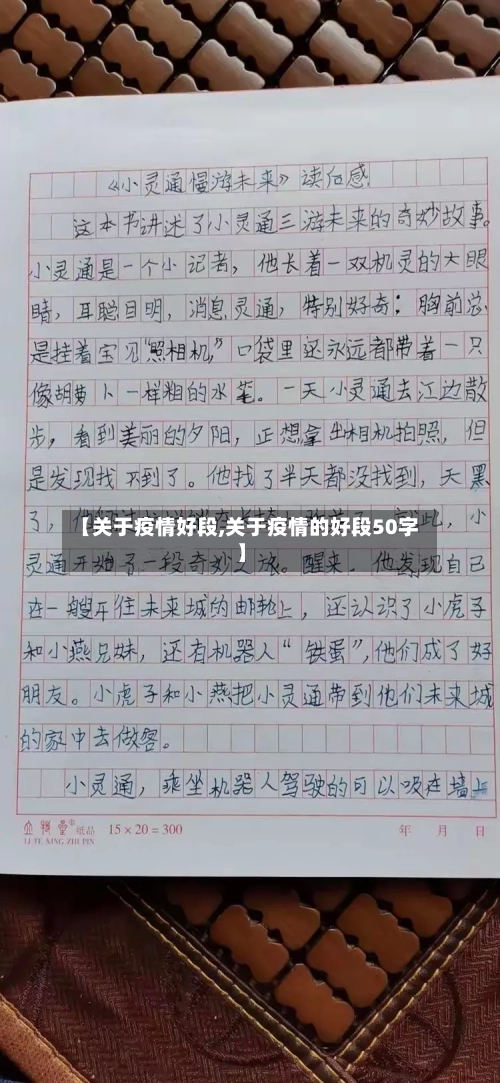 《小灵通慢游未来》读后感
这本书讲述了小灵通三游未来的奇妙故事。
小灵通是一个小记者，他长着一双机灵的大眼
睛，耳聪目明，消息灵通，特别好奇；胸前总
是挂着宝贝“照相机，”口袋里还永远都带着一只
像胡萝卜一样粗的水笔。一天小灵通去江边散
步，看到美丽的夕阳，正想拿出相机拍照，但
是发现找不到了。他找了半天都没找到，天黑
【关于疫情好段,关于疫情的好段50字
】
了，此，小
灵通开始了一段奇妙之旅。醒来，他发现自己
在一艘开往未来城的邮轮上，还认识了小虎子
和小燕兄妹，还有机器人“铁蛋”，他们成了好
朋友。小虎子和小燕把小灵通带到他们未来城
的家中去做客。
小灵通，乘坐机器人驾驶的可以吸在墙上
立得意®纸品 15×20=300 年 月 日
LI TE XING ZHI PIN